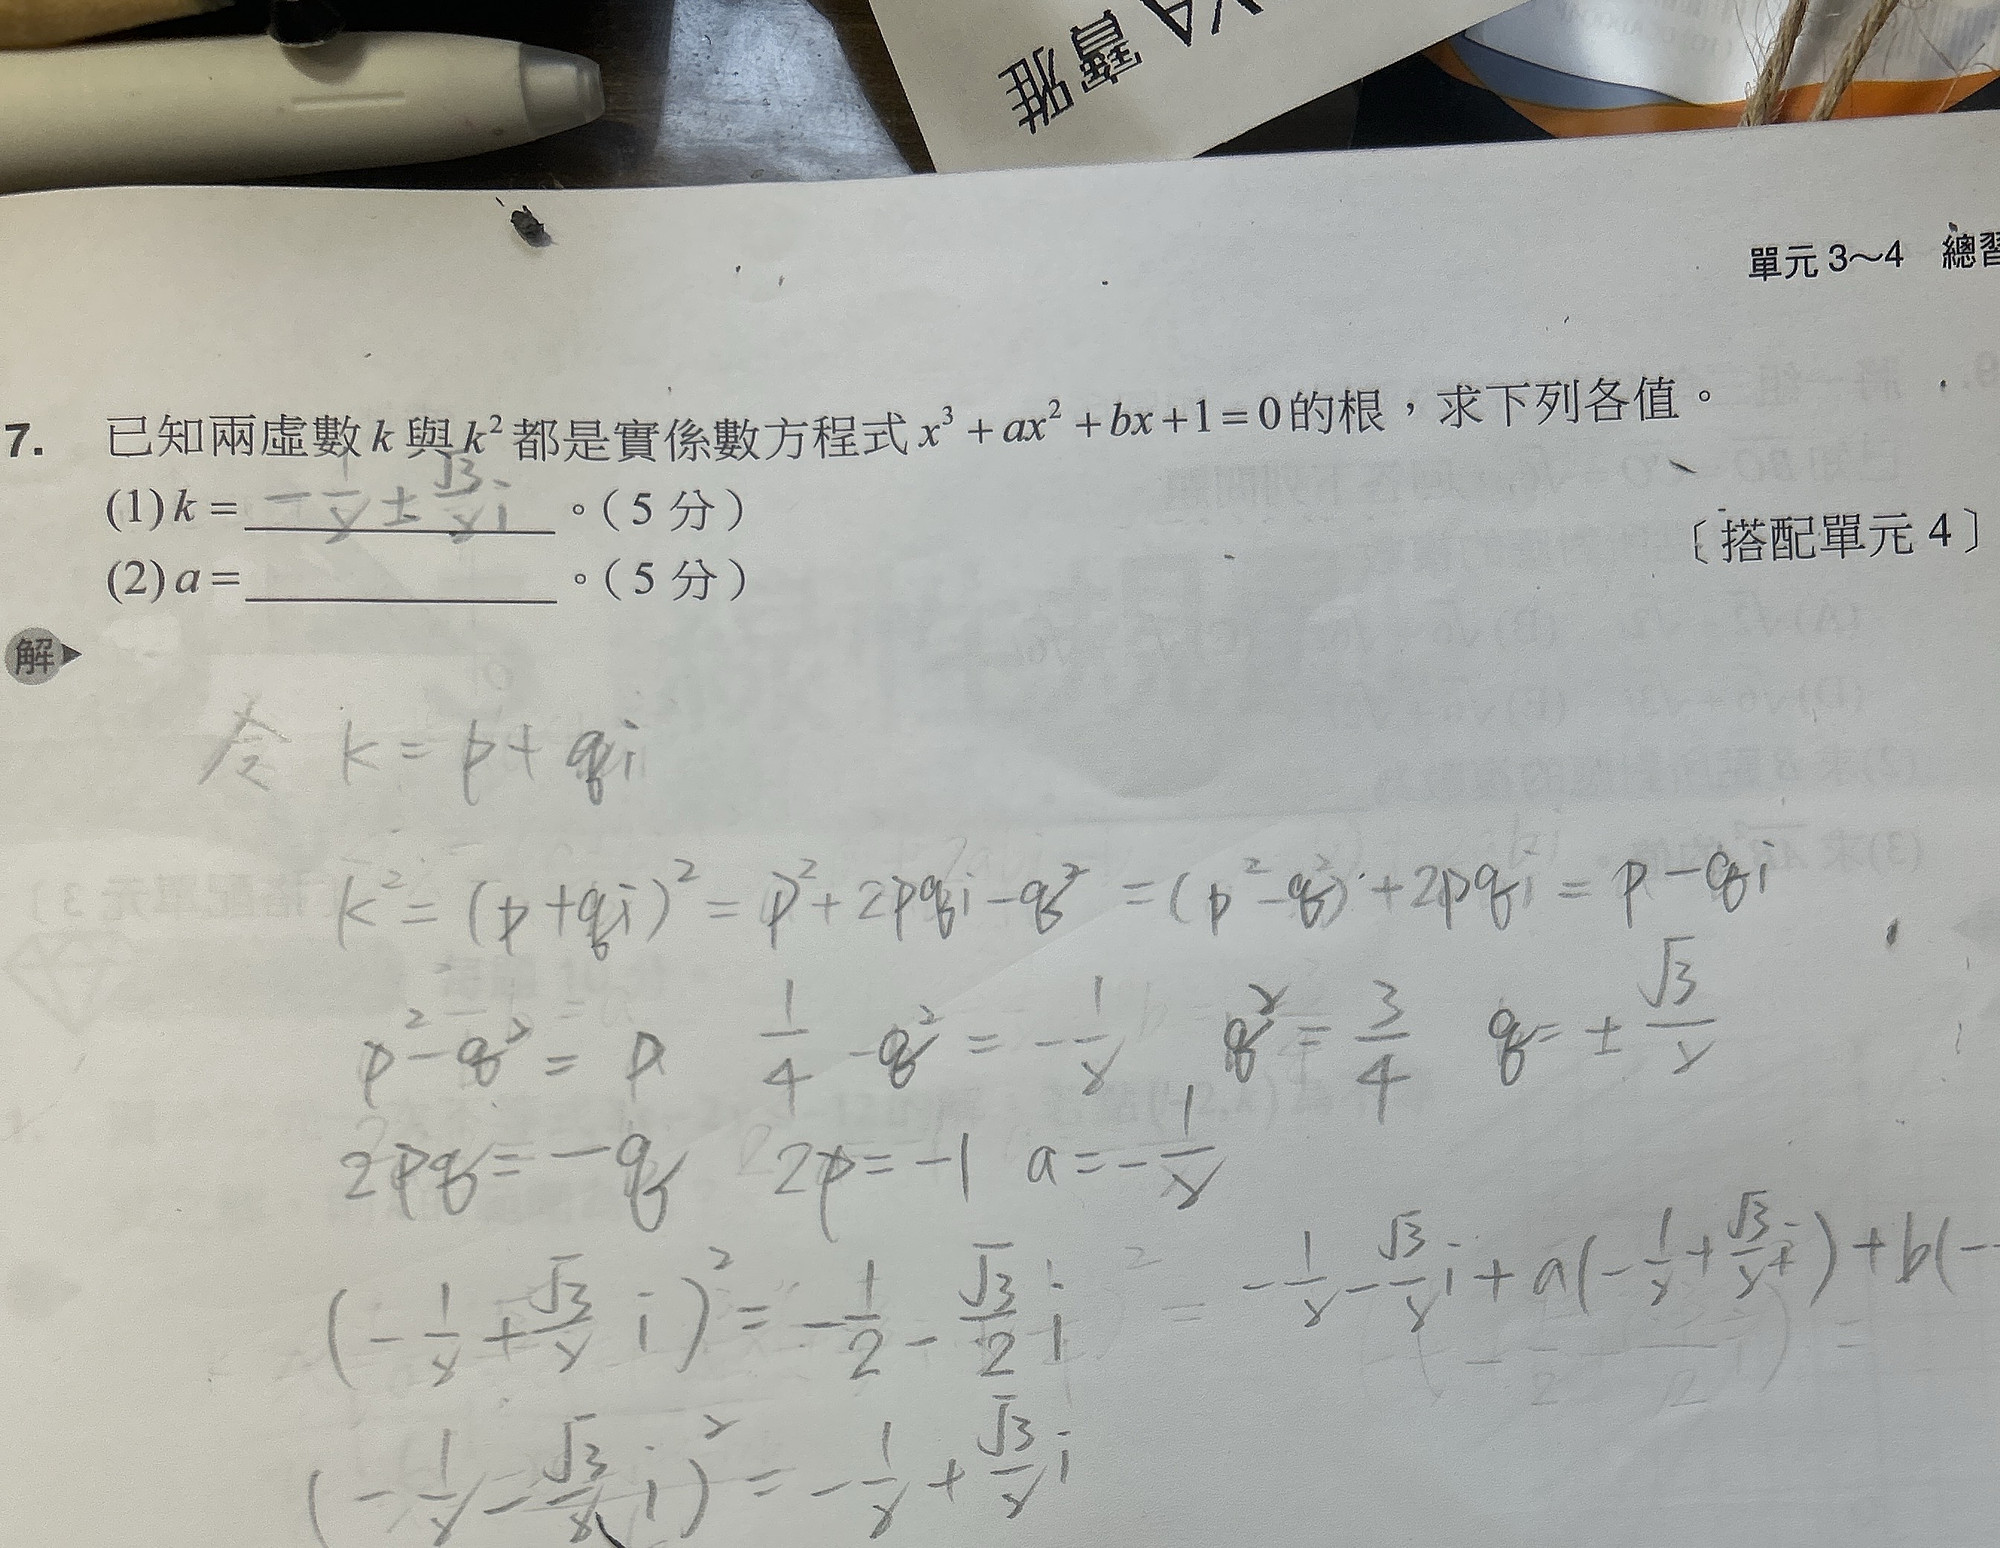 寶雅 YA
單元 3～4 總習
7. 已知兩虛數 k 與 k² 都是實係數方程式 x³ + ax² + bx + 1 = 0 的根，求下列各值。
(1) k = -1/2 ± √3/2 i 。（5 分）
〔搭配單元 4〕
(2) a = ______ 。（5 分）
解
令 k = p + qi
k² = (p + qi)² = p² + 2pqi - q² = (p² - q²) + 2pqi = p - qi
p² - q² = p 1/4 - q² = -1/2 q² = 3/4 q = ± √3/2
2pq = -q 2p = -1 a = -1/2
(-1/2 + √3/2 i)² = -1/2 - √3/2 i = -1/2 - √3/2 i + a(-1/2 + √3/2 i) + b(-
(-1/2 - √3/2 i)² = -1/2 + √3/2 i